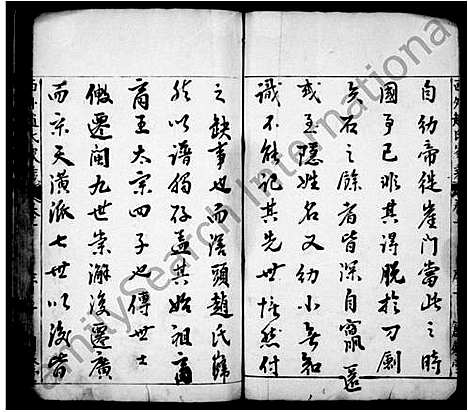 自幼帝徙崖門當此之時
國事已非其得脫於刀劍
矢石之餘者皆深自竄匿
或至隱姓名又幼小無知
識不能記其先世恬然付
之缺事也而滘頭趙氏巋
然以譜獨存蓋其始祖商
商王太宗四子也傳世士
㒃遷閩九世崇瀚復遷廣
而宗天潢派七世以後皆
FamilySearch International